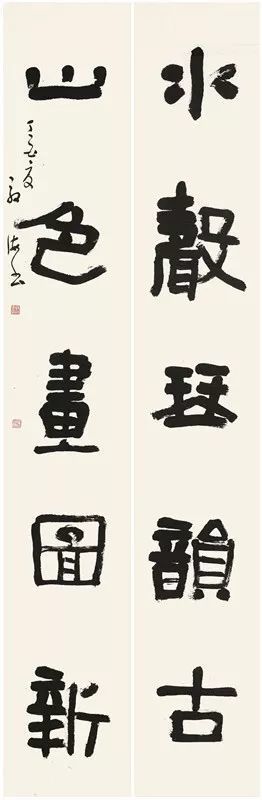 水聲琴韻古
山色畫圖新